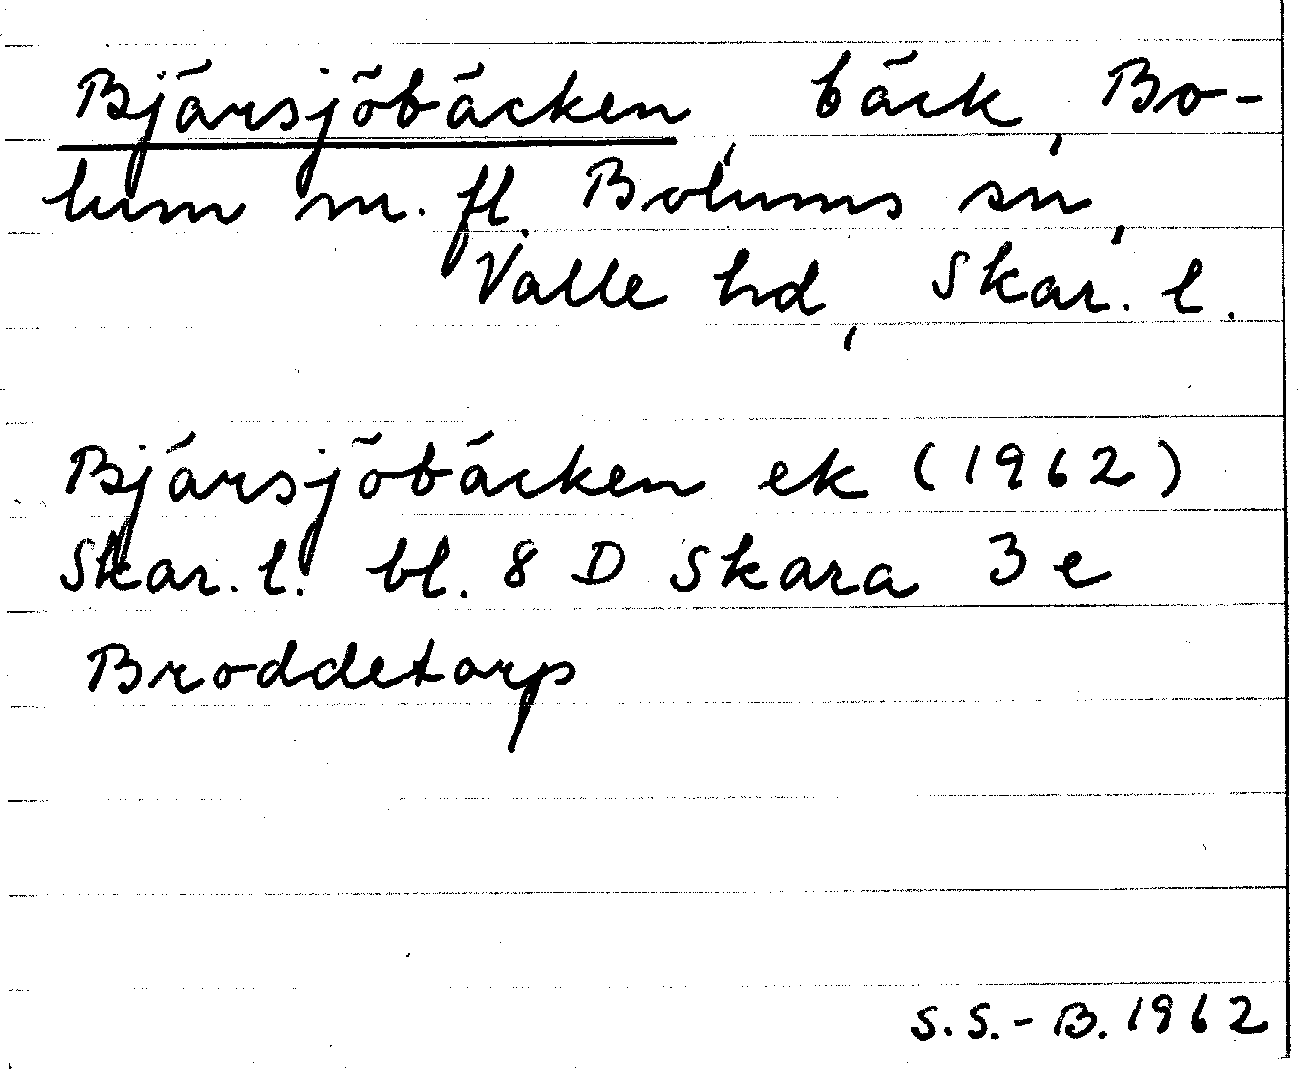 Bjärsjöbäcken, bäck, Bo-
lum m. fl. Bolums sn,
Valle hd, Skar. l.
Bjärsjöbäcken ek (1962)
Skar. l. bl. 8 D Skara 3 e
Broddetorp
S.S.-B. 1962